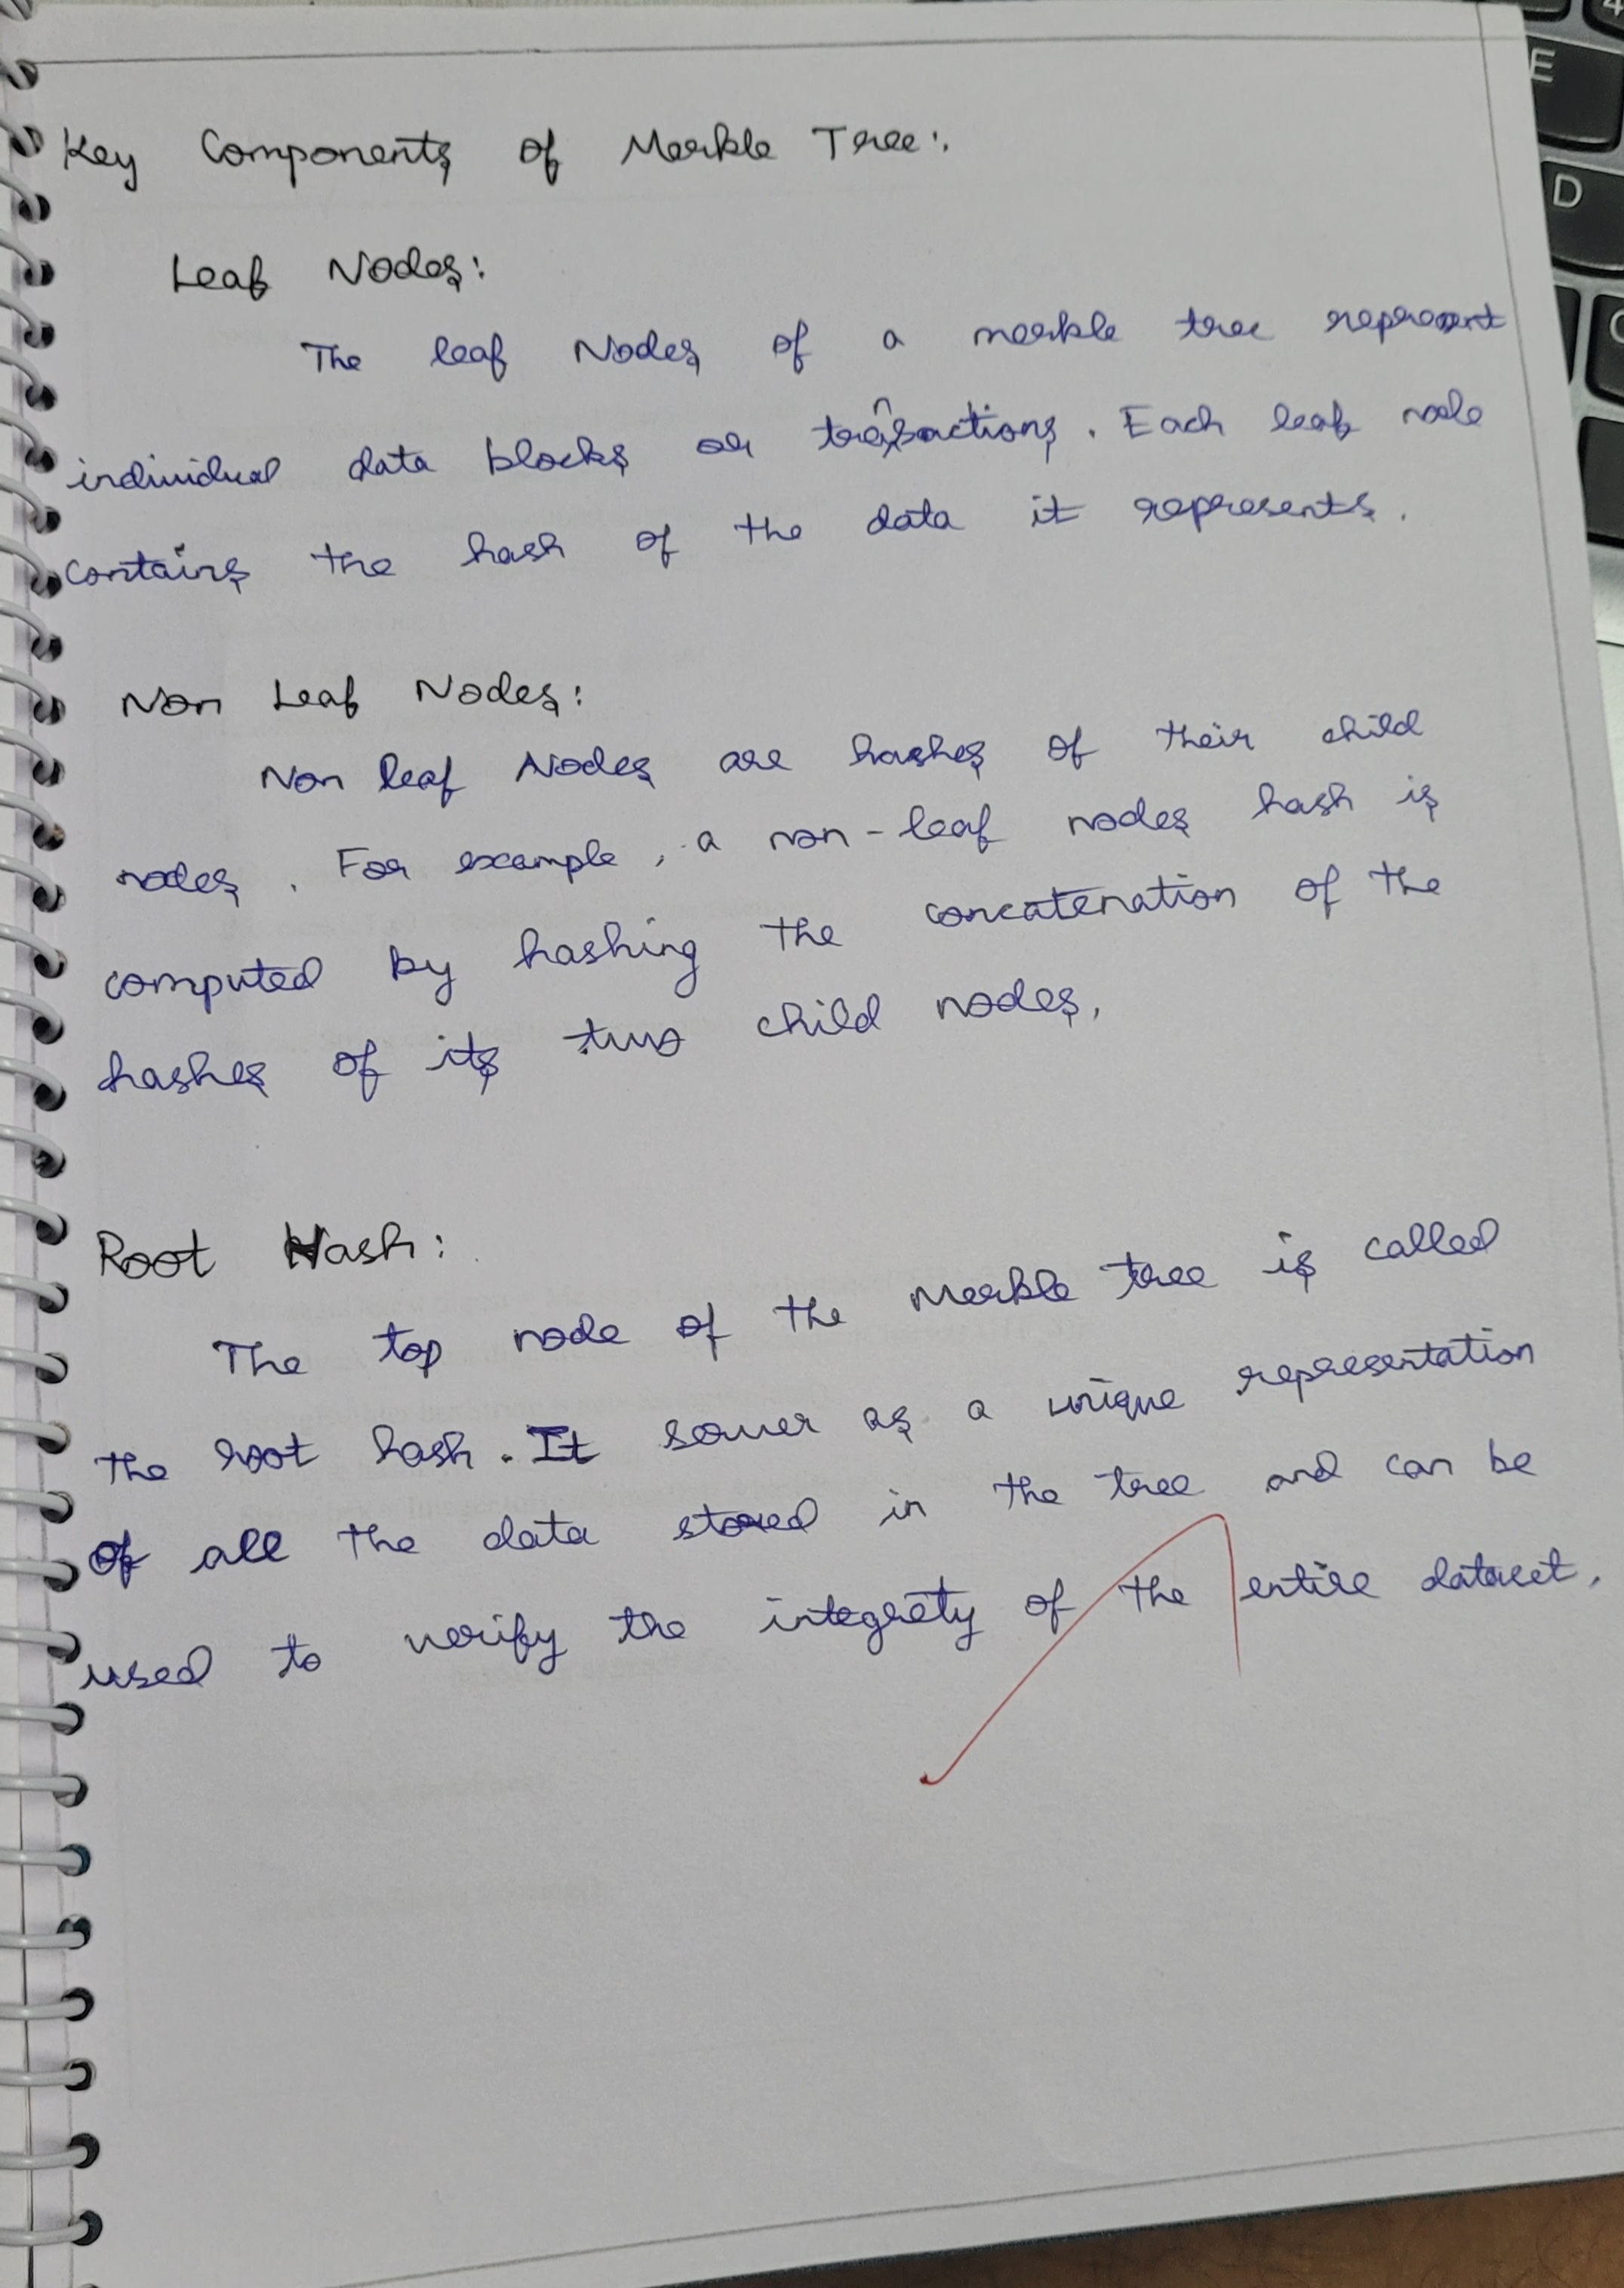 Key Components of Merkle Tree:
Leaf Nodes:
The leaf Nodes of a merkle tree represent
individual data blocks or transactions. Each leaf node
contains the hash of the data it represents.
Non Leaf Nodes:
Non leaf Nodes are hashes of their child
nodes. For example, a non-leaf nodes hash is
computed by hashing the concatenation of the
hashes of its two child nodes.
Root Hash:
The top node of the Merkle tree is called
the root hash. It as a unique representation
of all the data stored in the tree and can be
used to verify the integrety of the entire dataset.
E
D